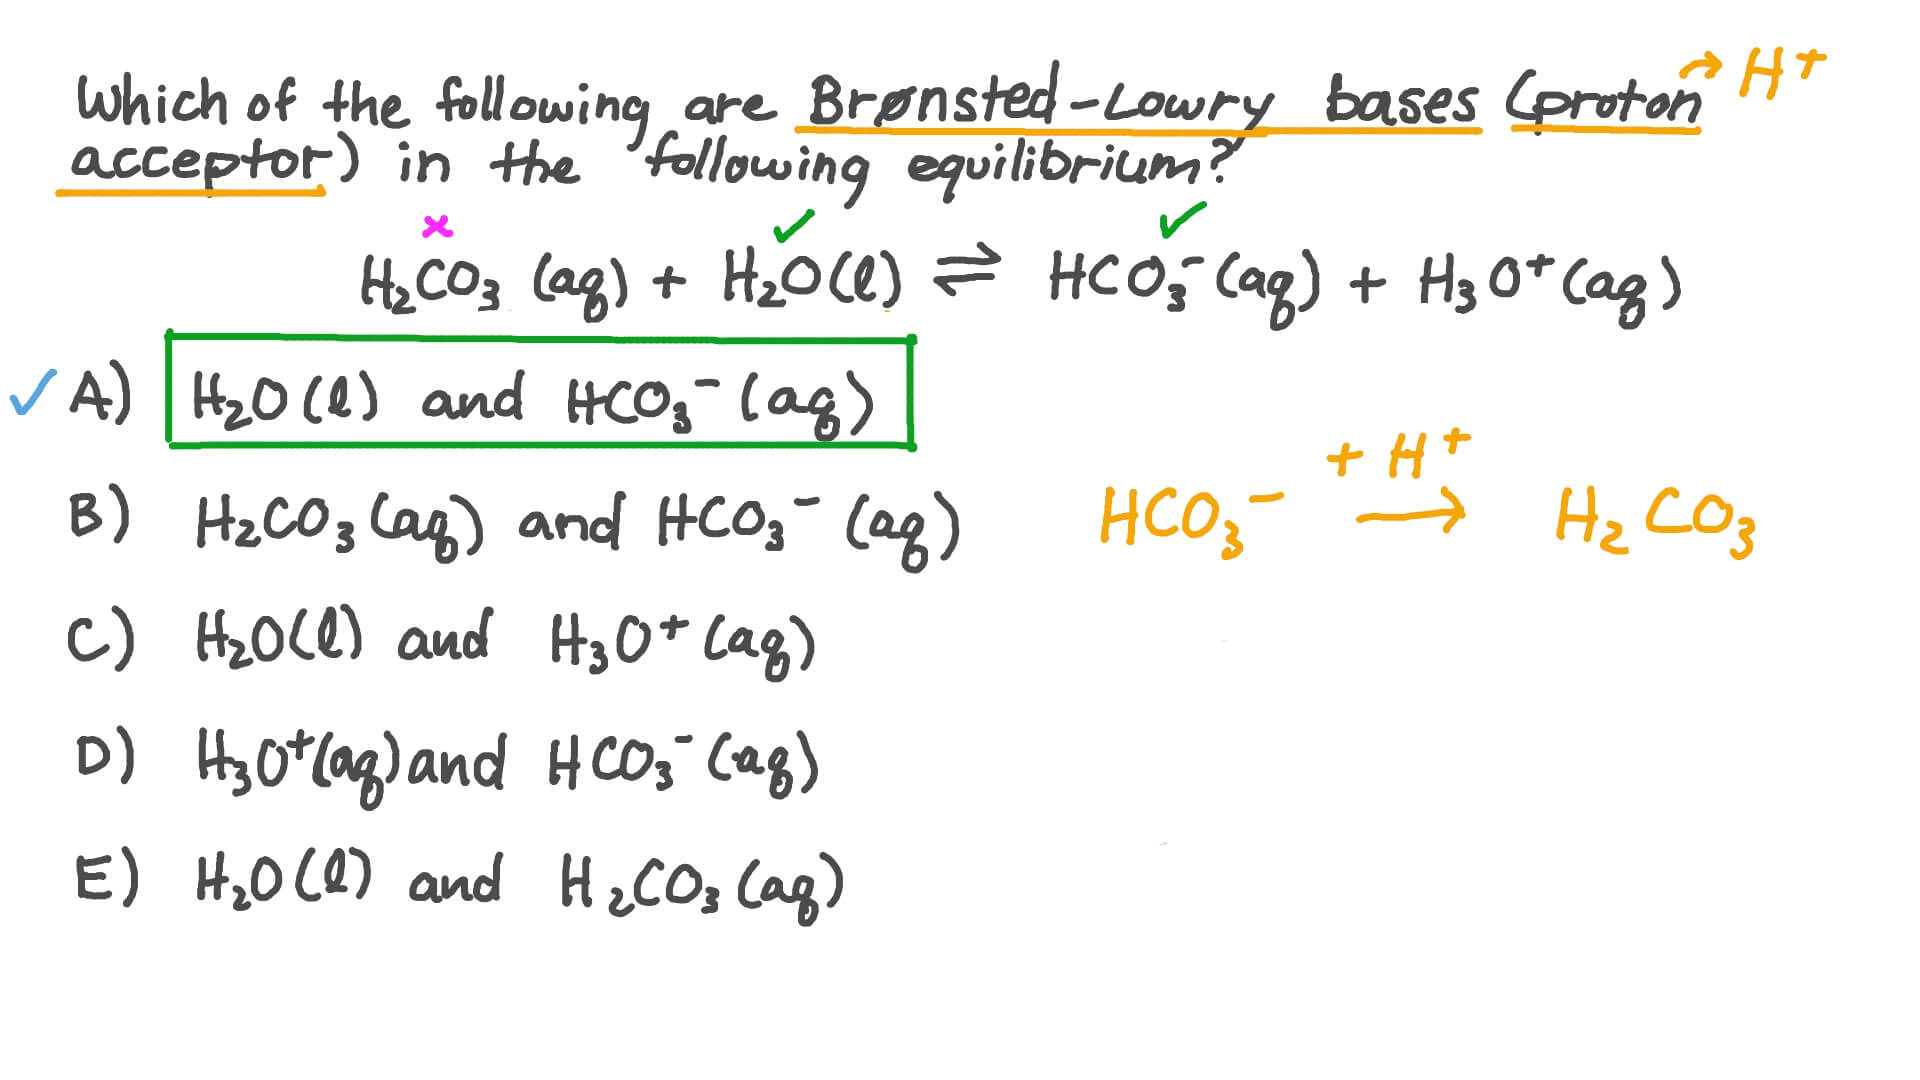 Which of the following are Brønsted-Lowry bases (proton → H⁺
acceptor) in the following equilibrium?
× ✓ ✓
H₂CO₃ (aq) + H₂O(l) ⇌ HCO₃⁻(aq) + H₃O⁺(aq)
✓ A) H₂O(l) and HCO₃⁻(aq)
+ H⁺
B) H₂CO₃(aq) and HCO₃⁻(aq) HCO₃⁻ → H₂CO₃
C) H₂O(l) and H₃O⁺(aq)
D) H₃O⁺(aq) and HCO₃⁻(aq)
E) H₂O(l) and H₂CO₃(aq)